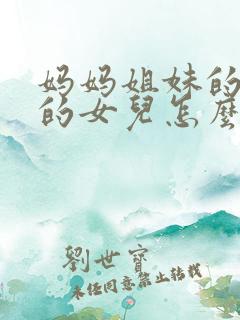 妈妈姐妹的
的女兒怎麼
劉世寶
未经同意禁止转载